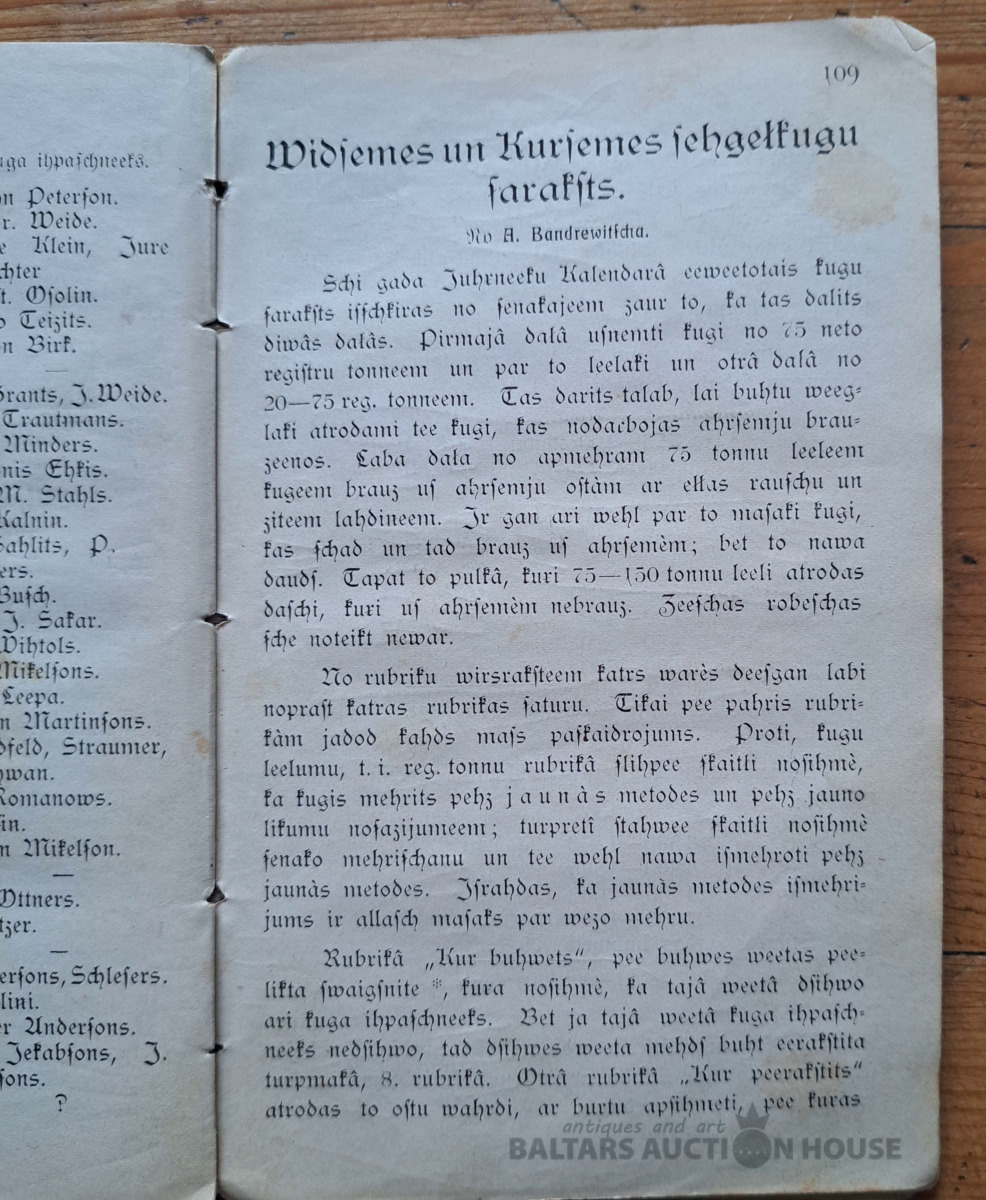 uga ihpaſchneeks.
n Peterſon.
r. Weide.
e Klein, Jure
chter
t. Oſolin.
o Teizits.
n Birk.
—
Grants, J. Weide.
Trautmans.
Minders.
nis Ehķis.
M. Stahls.
Kalnin.
Sahlits, P.
ers.
Buſch.
J. Sakar.
Wihtols.
Mikelſons.
Leepa.
n Martinſons.
dfeld, Straumer,
hwan.
Romanows.
in.
n Mikelſon.
—
Ottners.
tzer.
—
erſons, Schleſers.
lini.
er Anderſons.
Jekabſons, J.
ſons.
?
109
Widſemes un Kurſemes ſehgełkugu
ſarakſts.
No A. Bandrewitſcha.
Schi gada Juhrneeku Kalendarâ eeweetotais kugu
ſarakſts iſſchkiras no ſenakajeem zaur to, ka tas dalits
diwâs dałâs. Pirmajâ dalâ uſnemti kugi no 75 neto
regiſtru tonneem un par to leelaki un otrâ dalâ no
20—75 reg. tonneem. Tas darits talab, lai buhtu weeg-
laki atrodami tee kugi, kas nodarbojas ahrſemju brau-
zeenos. Laba dała no apmehram 75 tonnu leeleem
kugeem brauz uſ ahrſemju oſtàm ar ełłas rauſchu un
ziteem lahdineem. Ir gan ari wehl par to maſaki kugi,
kas ſchad un tad brauz uſ ahrſemèm; bet to nawa
daudſ. Tapat to pulkâ, kuri 75—150 tonnu leeli atrodas
daſchi, kuri uſ ahrſemèm nebrauz. Zeeſchas robeſchas
ſche noteikt newar.
No rubriku wirsrakſteem katrs warès deeſgan labi
nopraſt katras rubrikas ſaturu. Tikai pee pahris rubri-
kàm jadod kahds maſs paſkaidrojums. Proti, kugu
leelumu, t. i. reg. tonnu rubrikâ ſlihpee ſkaitli noſihmè,
ka kugis mehrits pehz jaunàs metodes un pehz jauno
likumu noſazijumeem; turpretî ſtahwee ſkaitli noſihmè
ſenako mehriſchanu un tee wehl nawa iſmehroti pehz
jaunàs metodes. Iſrahdas, ka jaunàs metodes iſmehri-
jums ir allaſch maſaks par wezo mehru.
Rubrikâ „Kur buhwets“, pee buhwes weetas pee-
likta ſwaigſnite *, kura noſihmè, ka tajâ weetâ dſihwo
ari kuga ihpaſchneeks. Bet ja tajâ weetâ kuga ihpaſch-
neeks nedſihwo, tad dſihwes weeta mehdſ buht eerakſtita
turpmakâ, 8. rubrikâ. Otrâ rubrikâ „Kur peerakſtits“
atrodas to oſtu wahrdi, ar burtu apſihmeti, pee kuras
antiques and art
BALTARS AUCTION HOUSE